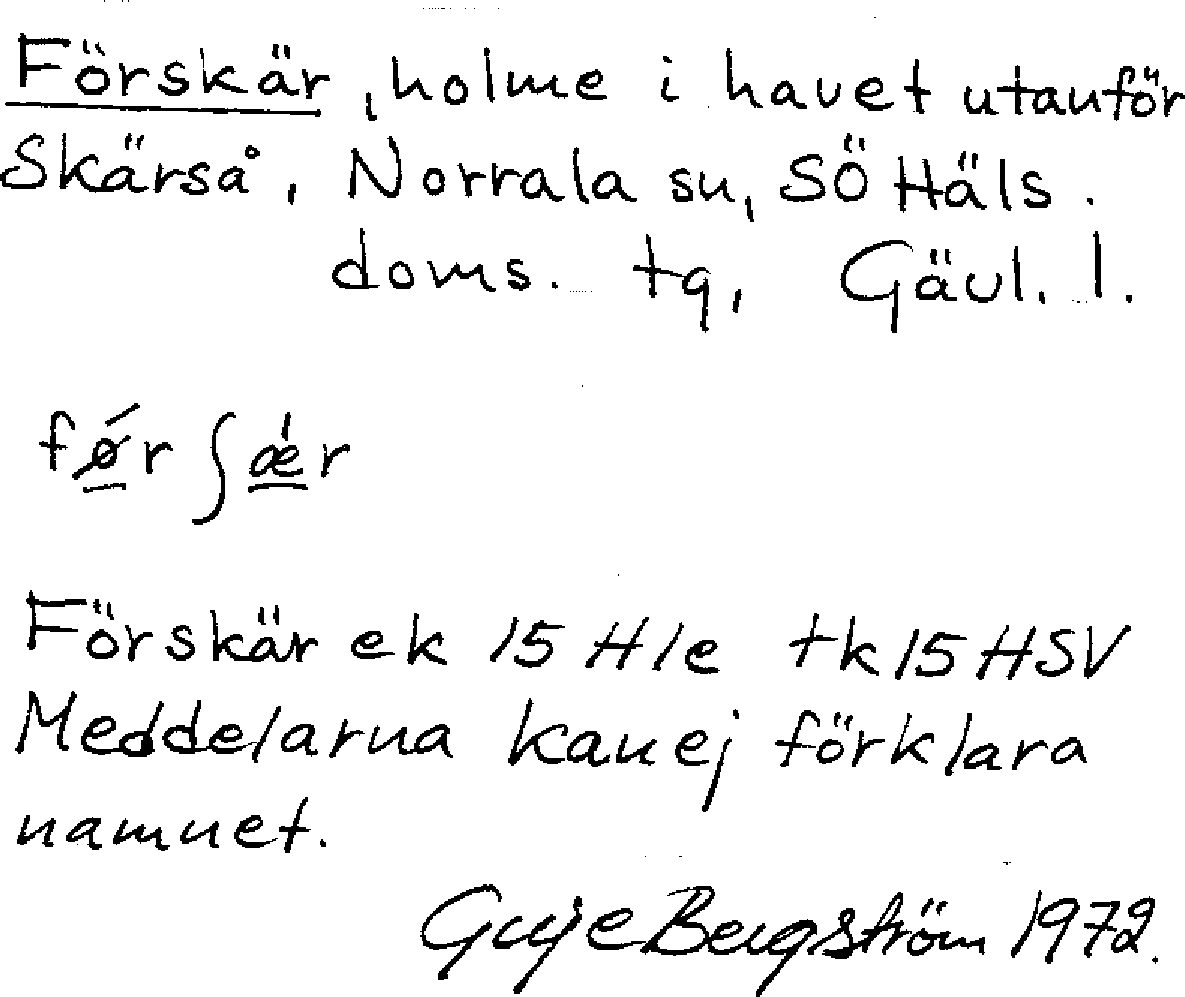 Förskär, holme i havet utanför
Skärså, Norrala sn, SÖ Häls.
doms. tg, Gävl. l.
fǿr ʃǽr
Förskär ek 15 H1e tk 15 HSV
Meddelarna kan ej förklara
namnet.
Guje Bergström 1972.